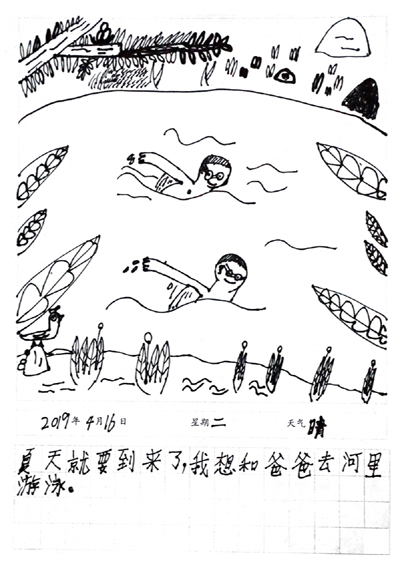 2019年4月16日 星期二 天气晴
夏天就要到来了，我想和爸爸去河里
游泳。